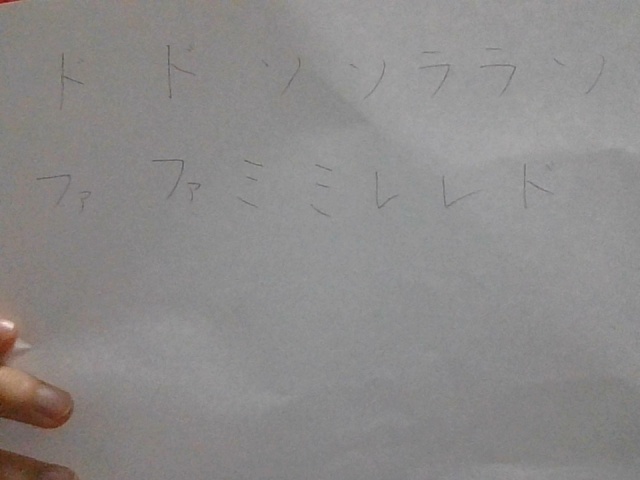 ド ド ソ ソ ラ ラ ソ
ファ ファ ミ ミ レ レ ド